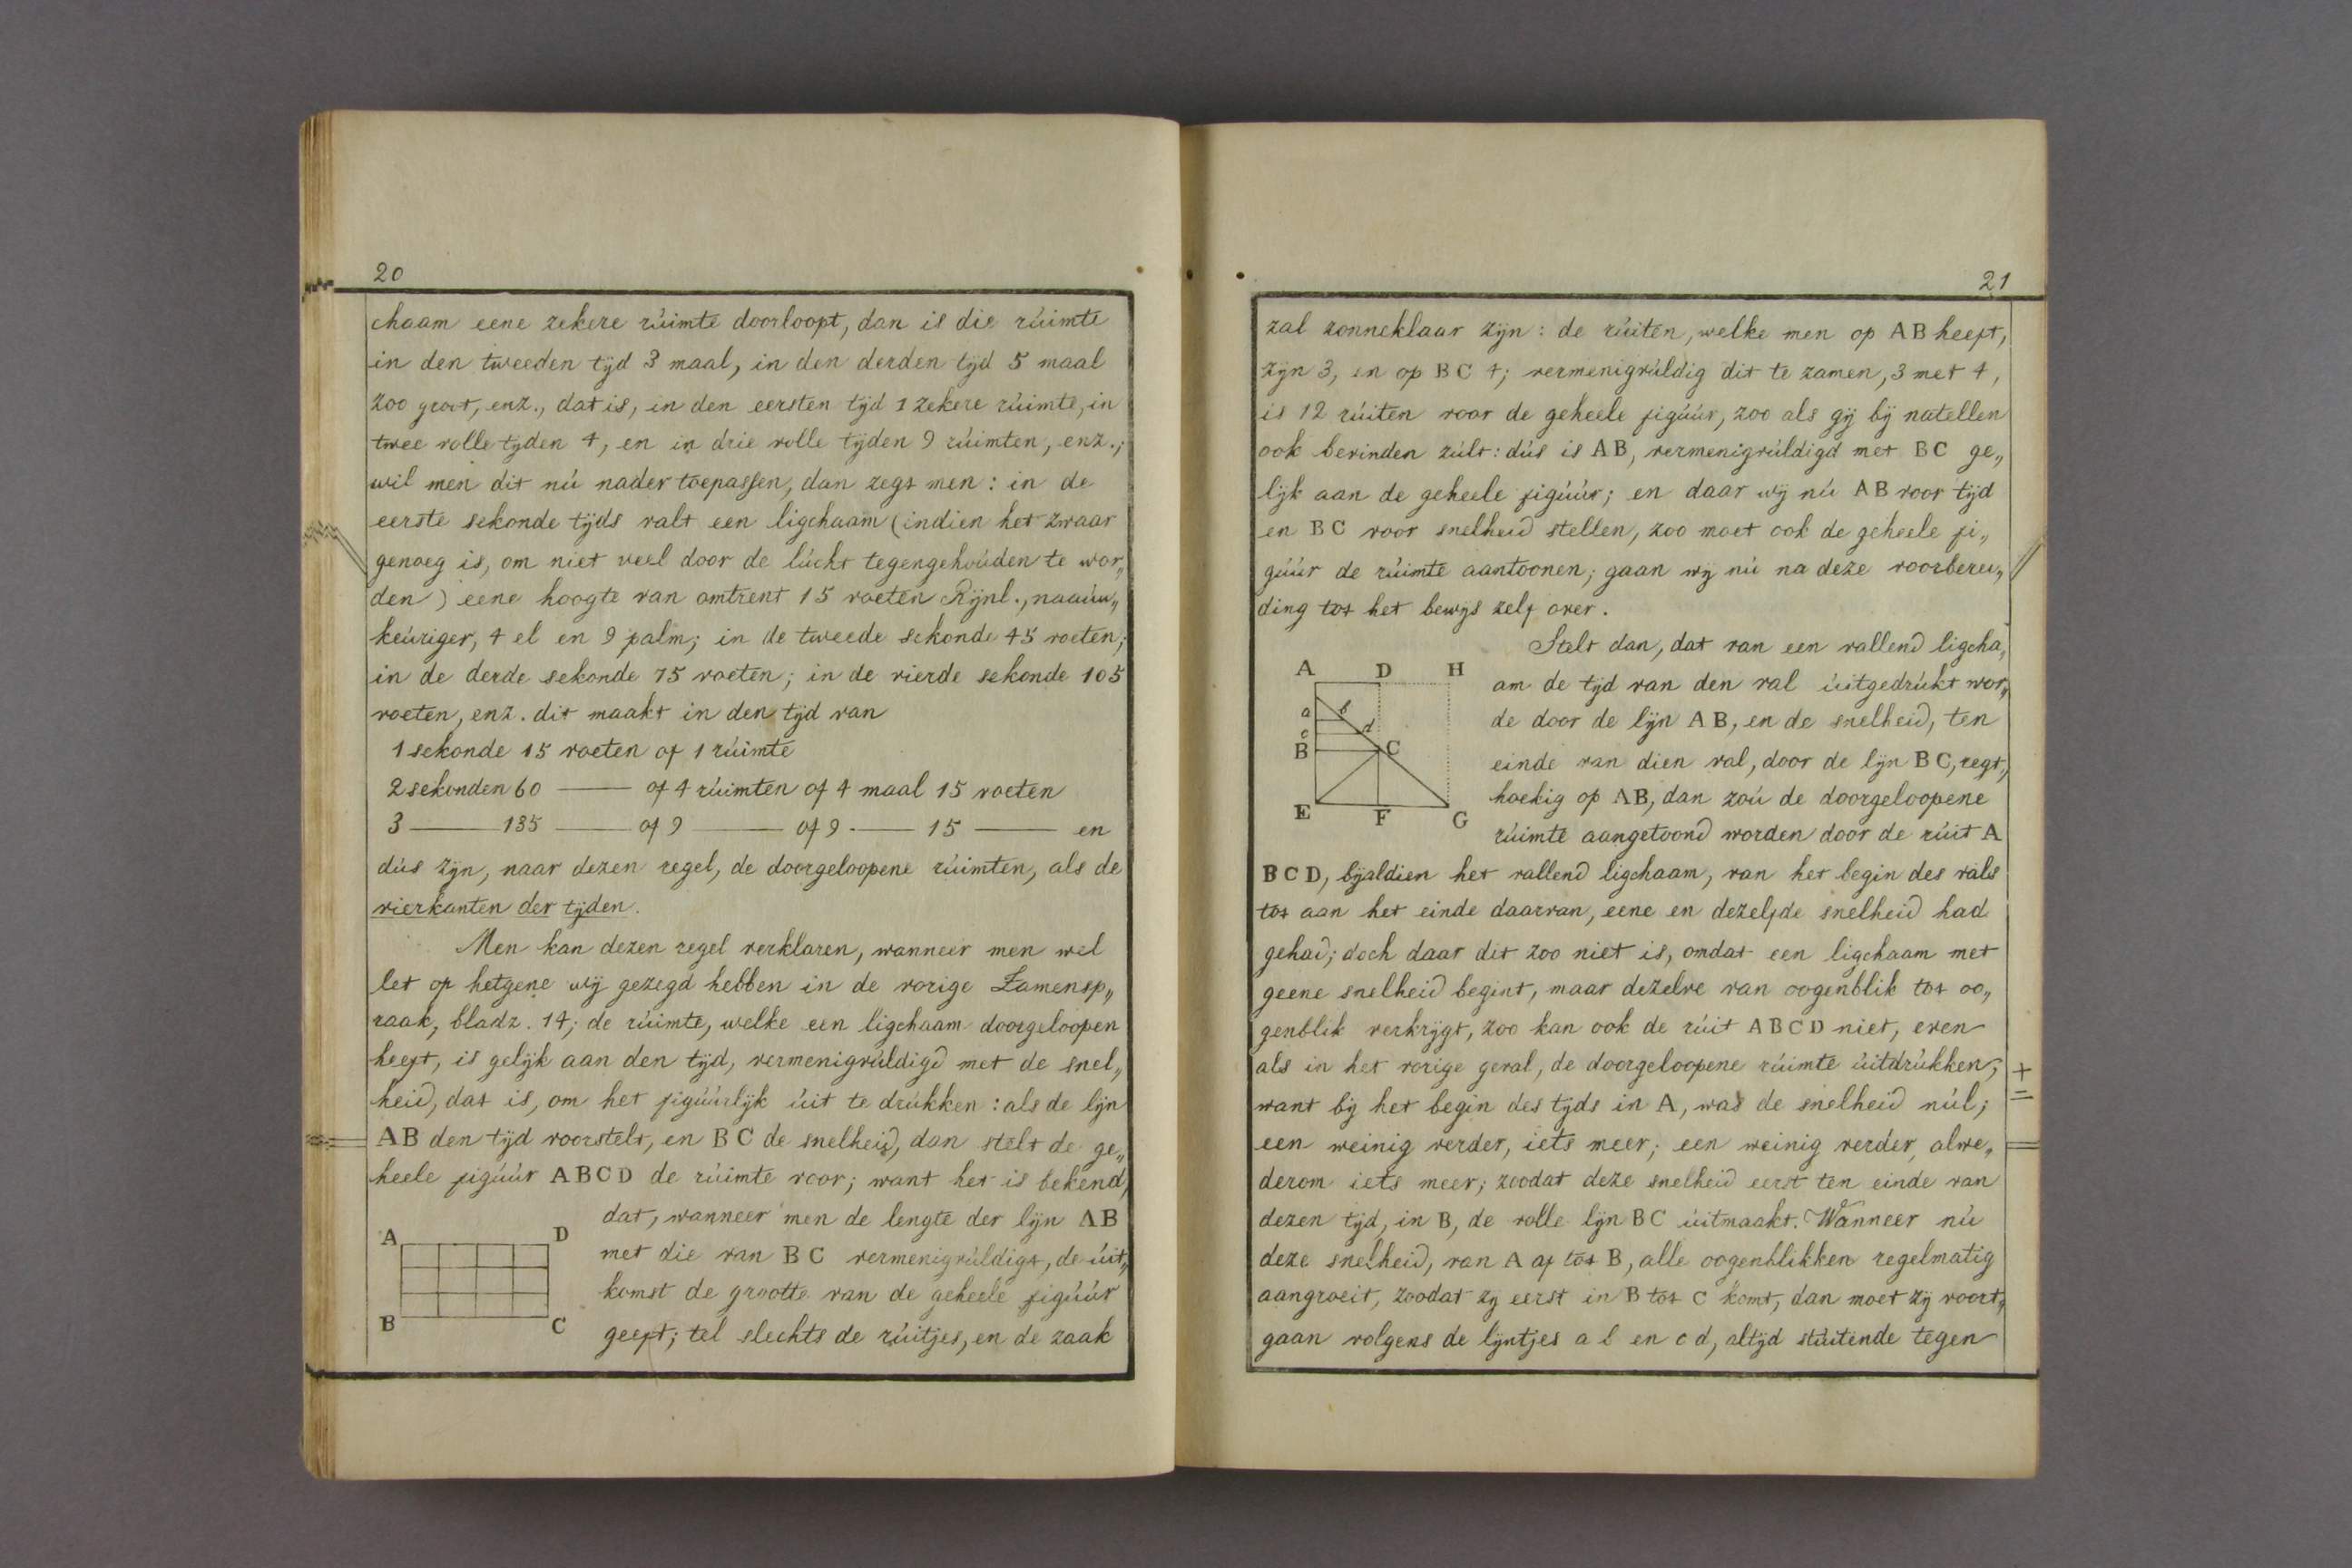 20
chaam eene zekere rúimte doorloopt, dan is die rúimte
in den tweeden tijd 3 maal, in den derden tijd 5 maal
zoo groot, enz., dat is, in den eersten tijd 1 zekere rúimte, in
twee volle tijden 4, en in drie volle tijden 9 rúimten, enz.;
wil men dit nú nader toepassen, dan zegt men: in de
eerste sekonde tijds valt een ligchaam (indien het zwaar
genoeg is, om niet veel door de lúcht tegengehoúden te wor„
den) eene hoogte van omtrent 15 voeten Rijnl., naaúw„
keúriger, 4 el en 9 palm; in de tweede sekonde 45 voeten;
in de derde sekonde 75 voeten; in de vierde sekonde 105
voeten, enz. dit maakt in den tijd van
1 sekonde 15 voeten of 1 rúimte
2 sekonden 60 —— of 4 rúimten of 4 maal 15 voeten
3 —— 135 —— of 9 —— of 9 —— 15 —— en
dús zijn, naar dezen regel, de doorgeloopene rúimten, als de
vierkanten der tijden.
Men kan dezen regel verklaren, wanneer men wel
let op hetgene wij gezegd hebben in de vorige Zamensp„
raak, bladz. 14; de rúimte, welke een ligchaam doorgeloopen
heeft, is gelijk aan den tijd, vermenigvúldigd met de snel„
heid, dat is, om het figúúrlijk úit te drúkken: als de lijn
AB den tijd voorstelt, en BC de snelheid, dan stelt de ge„
heele figúúr ABCD de rúimte voor; want het is bekend,
dat, wanneer men de lengte der lijn AB
met die van BC vermenigvúldigt, de úit„
komst de grootte van de geheele figúúr
geeft; tel slechts de rúitjes, en de zaak
A D
B C
21
zal zonneklaar zijn: de rúiten, welke men op AB heeft,
zijn 3, en op BC 4; vermenigvúldig dit te zamen, 3 met 4,
is 12 rúiten voor de geheele figúúr, zoo als gij bij natellen
ook bevinden zúlt: dús is AB, vermenigvúldigd met BC ge„
lijk aan de geheele figúúr; en daar wij nú AB voor tijd
en BC voor snelheid stellen, zoo moet ook de geheele fi„
gúúr de rúimte aantoonen; gaan wij nú na deze voorberei„
ding tot het bewijs zelf over.
Stelt dan, dat van een vallend ligcha„
am de tijd van den val úitgedrúkt wor„
de door de lijn AB, en de snelheid, ten
einde van dien val, door de lijn BC, regt„
hoekig op AB, dan zoú de doorgeloopene
rúimte aangetoond worden door de rúit A
A D H
a b
c d
B C
E F G
BCD, bijaldien het vallend ligchaam, van het begin des vals
tot aan het einde daarvan, eene en dezelfde snelheid had
gehad; doch daar dit zoo niet is, omdat een ligchaam met
geene snelheid begint, maar dezelve van oogenblik tot oo„
genblik verkrijgt, zoo kan ook de rúit ABCD niet, even
als in het vorige geval, de doorgeloopene rúimte úitdrúkken;
want bij het begin des tijds in A, was de snelheid núl;
een weinig verder, iets meer; een weinig verder, alwe„
derom iets meer; zoodat deze snelheid eerst ten einde van
dezen tijd, in B, de volle lijn BC úitmaakt. Wanneer nú
deze snelheid, van A af tot B, alle oogenblikken regelmatig
aangroeit, zoodat zij eerst in B tot C komt, dan moet zij voort„
gaan volgens de lijntjes a b en c d, altijd stúitende tegen